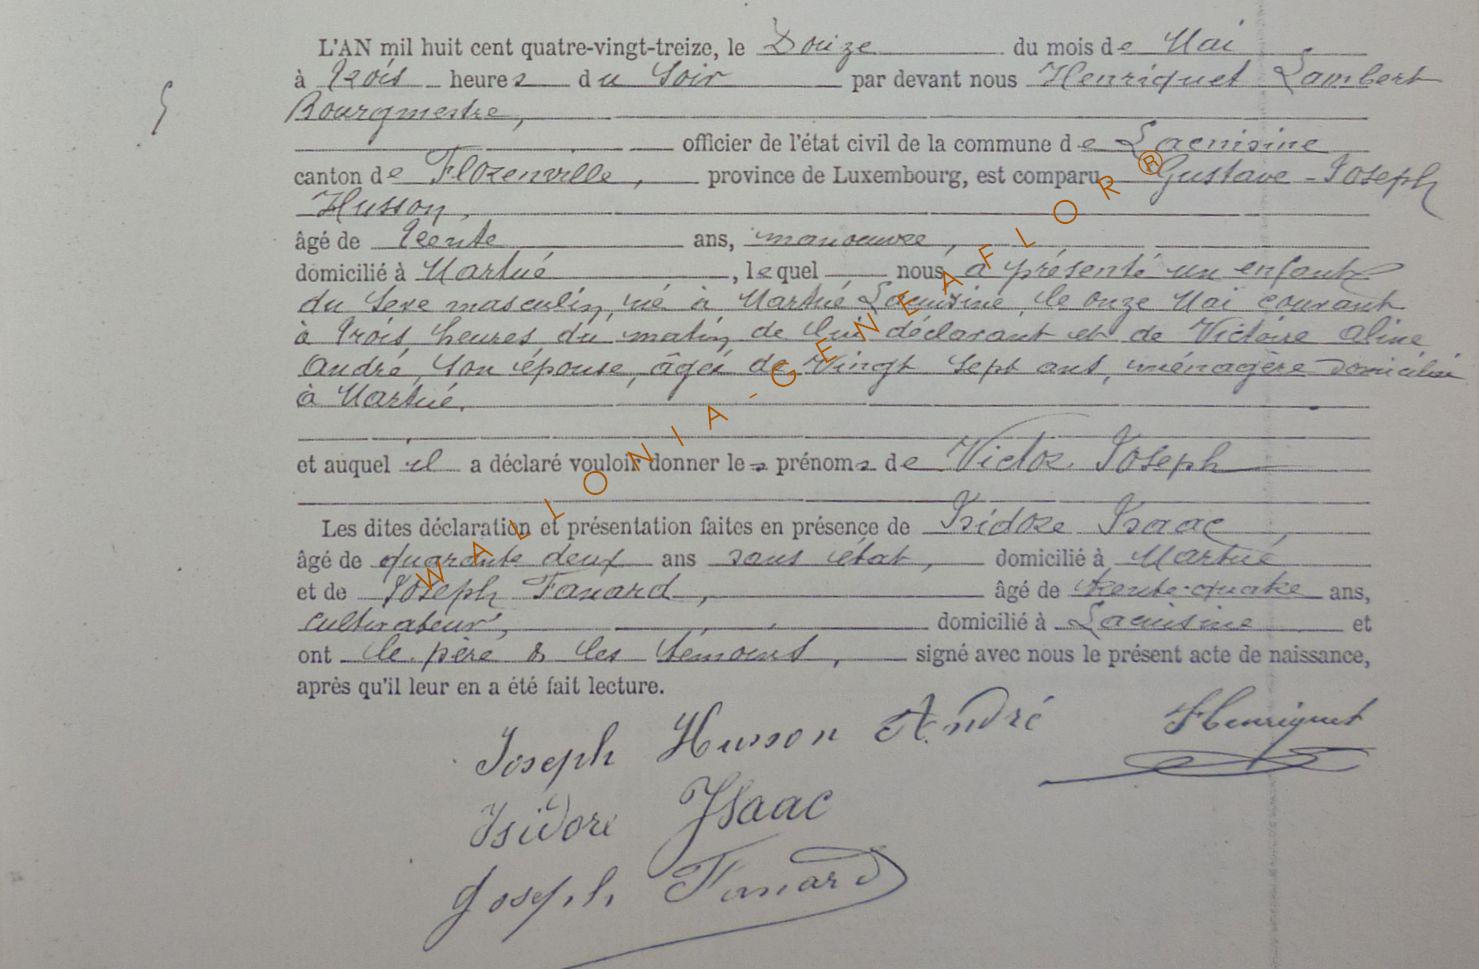 L'AN mil huit cent quatre-vingt-treize, le Douze du mois de Mai
à Trois heures du Soir par devant nous Henriquet Lambert
Bourgmestre,
officier de l'état civil de la commune de Lacuisine
canton de Florenville, province de Luxembourg, est comparu Gustave-Joseph
Husson,
âgé de Trente ans, manoeuvre,
domicilié à Martué, lequel nous a présenté un enfant
du Sexe masculin, né à Martué Lacuisine, le onze Mai courant
à Trois heures du matin de lui déclarant et de Victoire Aline
André, Son épouse, âgée de Vingt Sept ans, ménagère domiciliée
à Martué.
et auquel il a déclaré vouloir donner les prénoms de Victor Joseph
Les dites déclaration et présentation faites en présence de Isidore Isaac
âgé de quarante deux ans sans état, domicilié à Martué
et de Joseph Fanard, âgé de trente-quatre ans,
Cultivateur, domicilié à Lacuisine et
ont le père & les témoins, signé avec nous le présent acte de naissance,
après qu'il leur en a été fait lecture.
Joseph Husson André Henriquet
Isidore Isaac
Joseph Fanard
WALLONIA-GENEAFLOR®